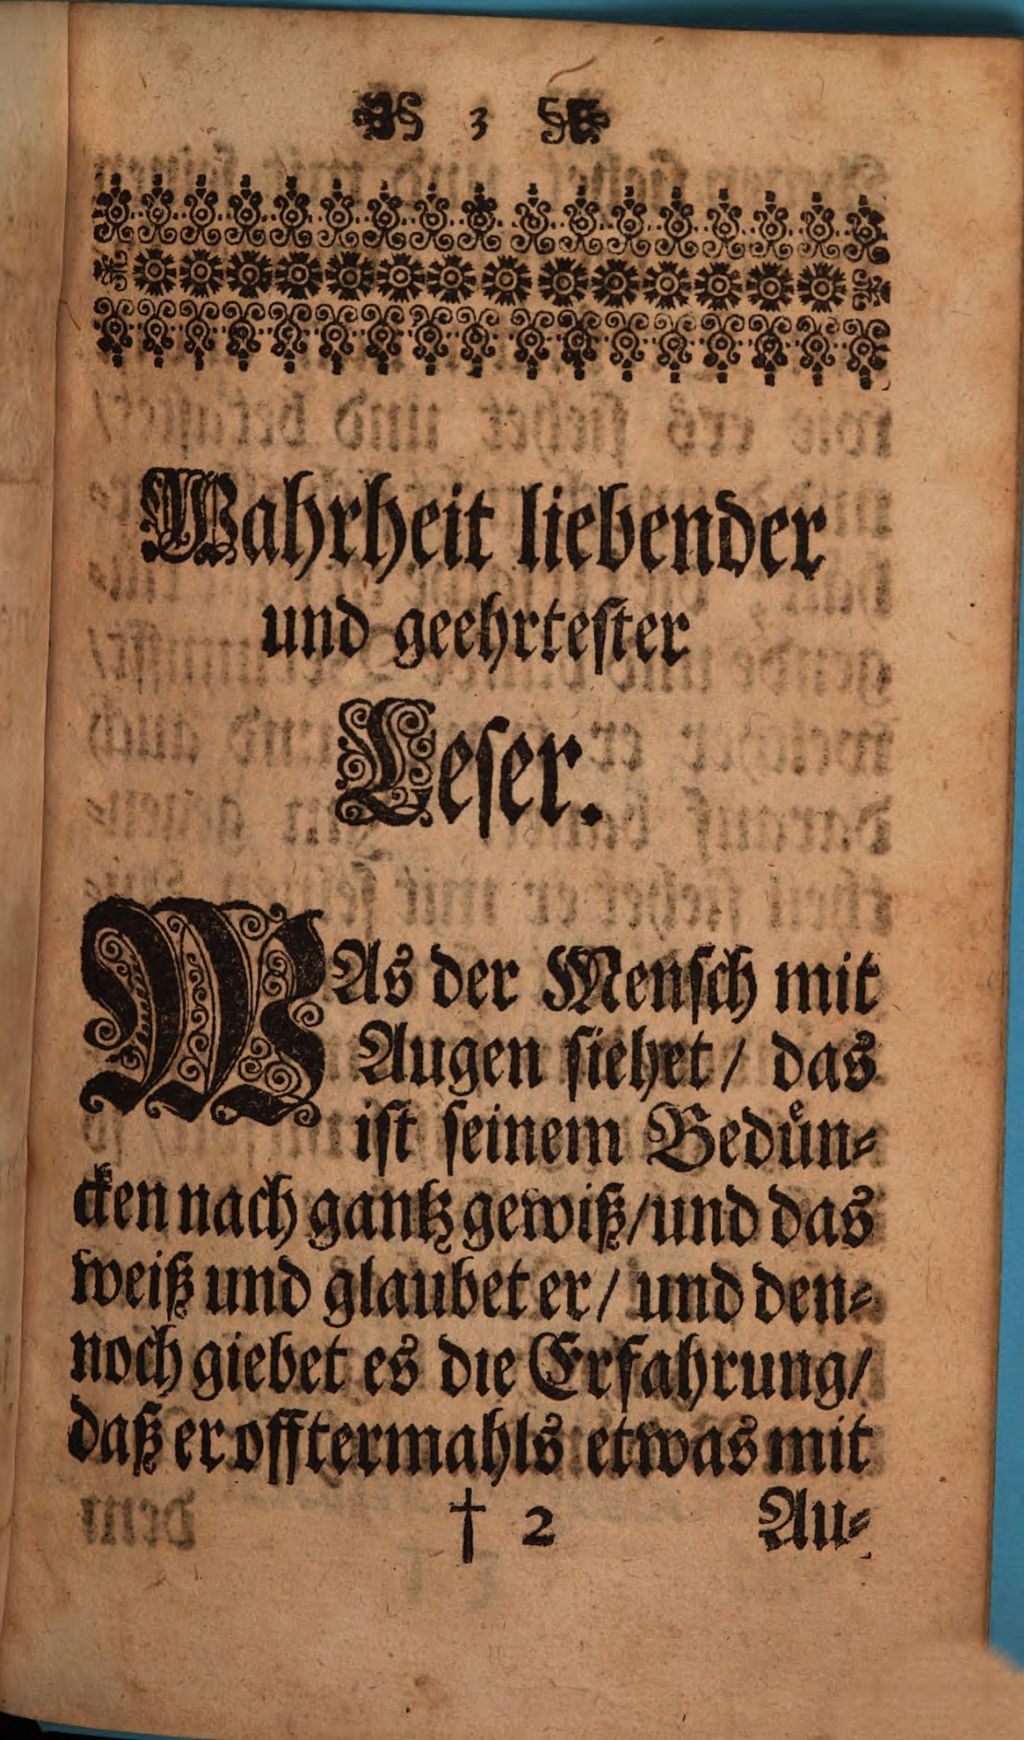 3
Wahrheit liebender
und geehrtester
Leser.
WAs der Mensch mit
Augen siehet / das
ist seinem Bedüncken
nach gantz gewiß / und das
weiß und glaubet er / und den-
noch giebet es die Erfahrung /
daß er offtermahls etwas mit
† 2 Au-